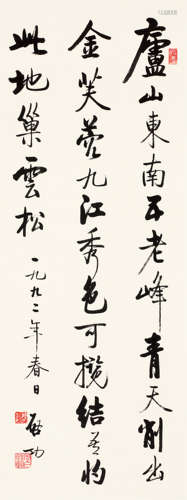 廬山東南五老峰青天削出
金芙蓉九江秀色可攬結吾將
此地巢雲松 一九九二年春日 启功